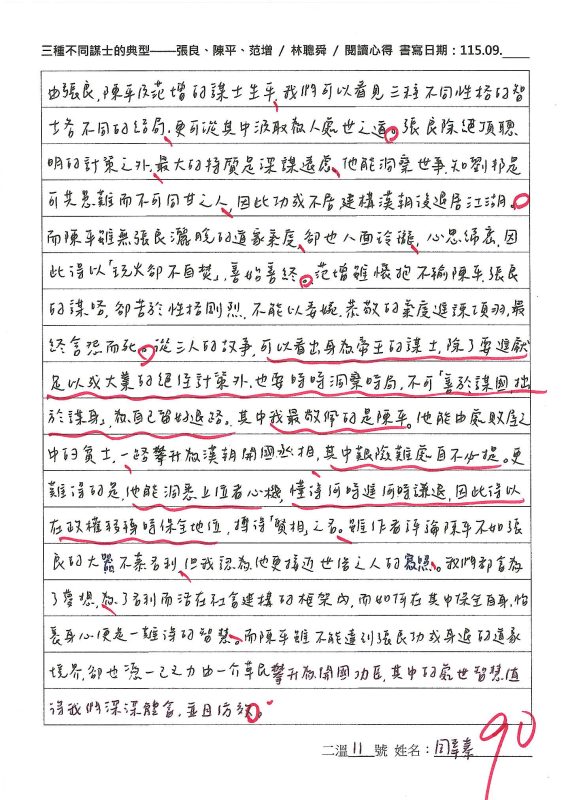 三種不同謀士的典型——張良、陳平、范增 / 林聰舜 / 閱讀心得 書寫日期：115.09.____
由張良,陳平及范增的謀士生平,我們可以看見三種不同性格的智
士各不同的結局,更可從其中汲取做人處世之道。張良除絕頂聰
明的計策之外,最大的特質是深謀遠慮,他能洞察世事,知劉邦是
可共患難而不可同甘之人,因此功成不居建構漢朝後退居江湖。
而陳平雖無張良灑脫的道家氣度,卻也人面玲瓏,心思縝密,因
此得以「玩火卻不自焚」,善始善終。范增雖懷抱不輸陳平,張良
的謀略,卻苦於性格剛烈,不能以委婉,恭敬的氣度進諫項羽,最
終含怨而死。從三人的故事,可以看出身為帝王的謀士,除了要進獻
足以成大業的絕佳計策外,也要時時洞察時局,不可「善於謀國,拙
於謀身」,為自己留好退路。其中我最敬佩的是陳平。他能由處敗屋之
中的貧士,一路攀升成漢朝開國丞相,其中艱險難處自不必提。更
難得的是,他能洞悉上位者心機,懂得何時進何時謙退,因此得以
在政權移轉時保全地位,博得「賢相」之名。雖作者評論陳平不如張
良的大器不慕名利,但我認為他更接近世俗之人的寫照。我們都會為
了夢想,為了名利而活在社會建構的框架內,而如何在其中保全自身,怡
養身心便是一難得的智慧。而陳平雖不能達到張良功成身退的道家
境界,卻也憑一己之力由一介草民攀升成開國功臣,其中的處世智慧值
得我們深深體會,並且仿效。
二溫 11 號 姓名：
90